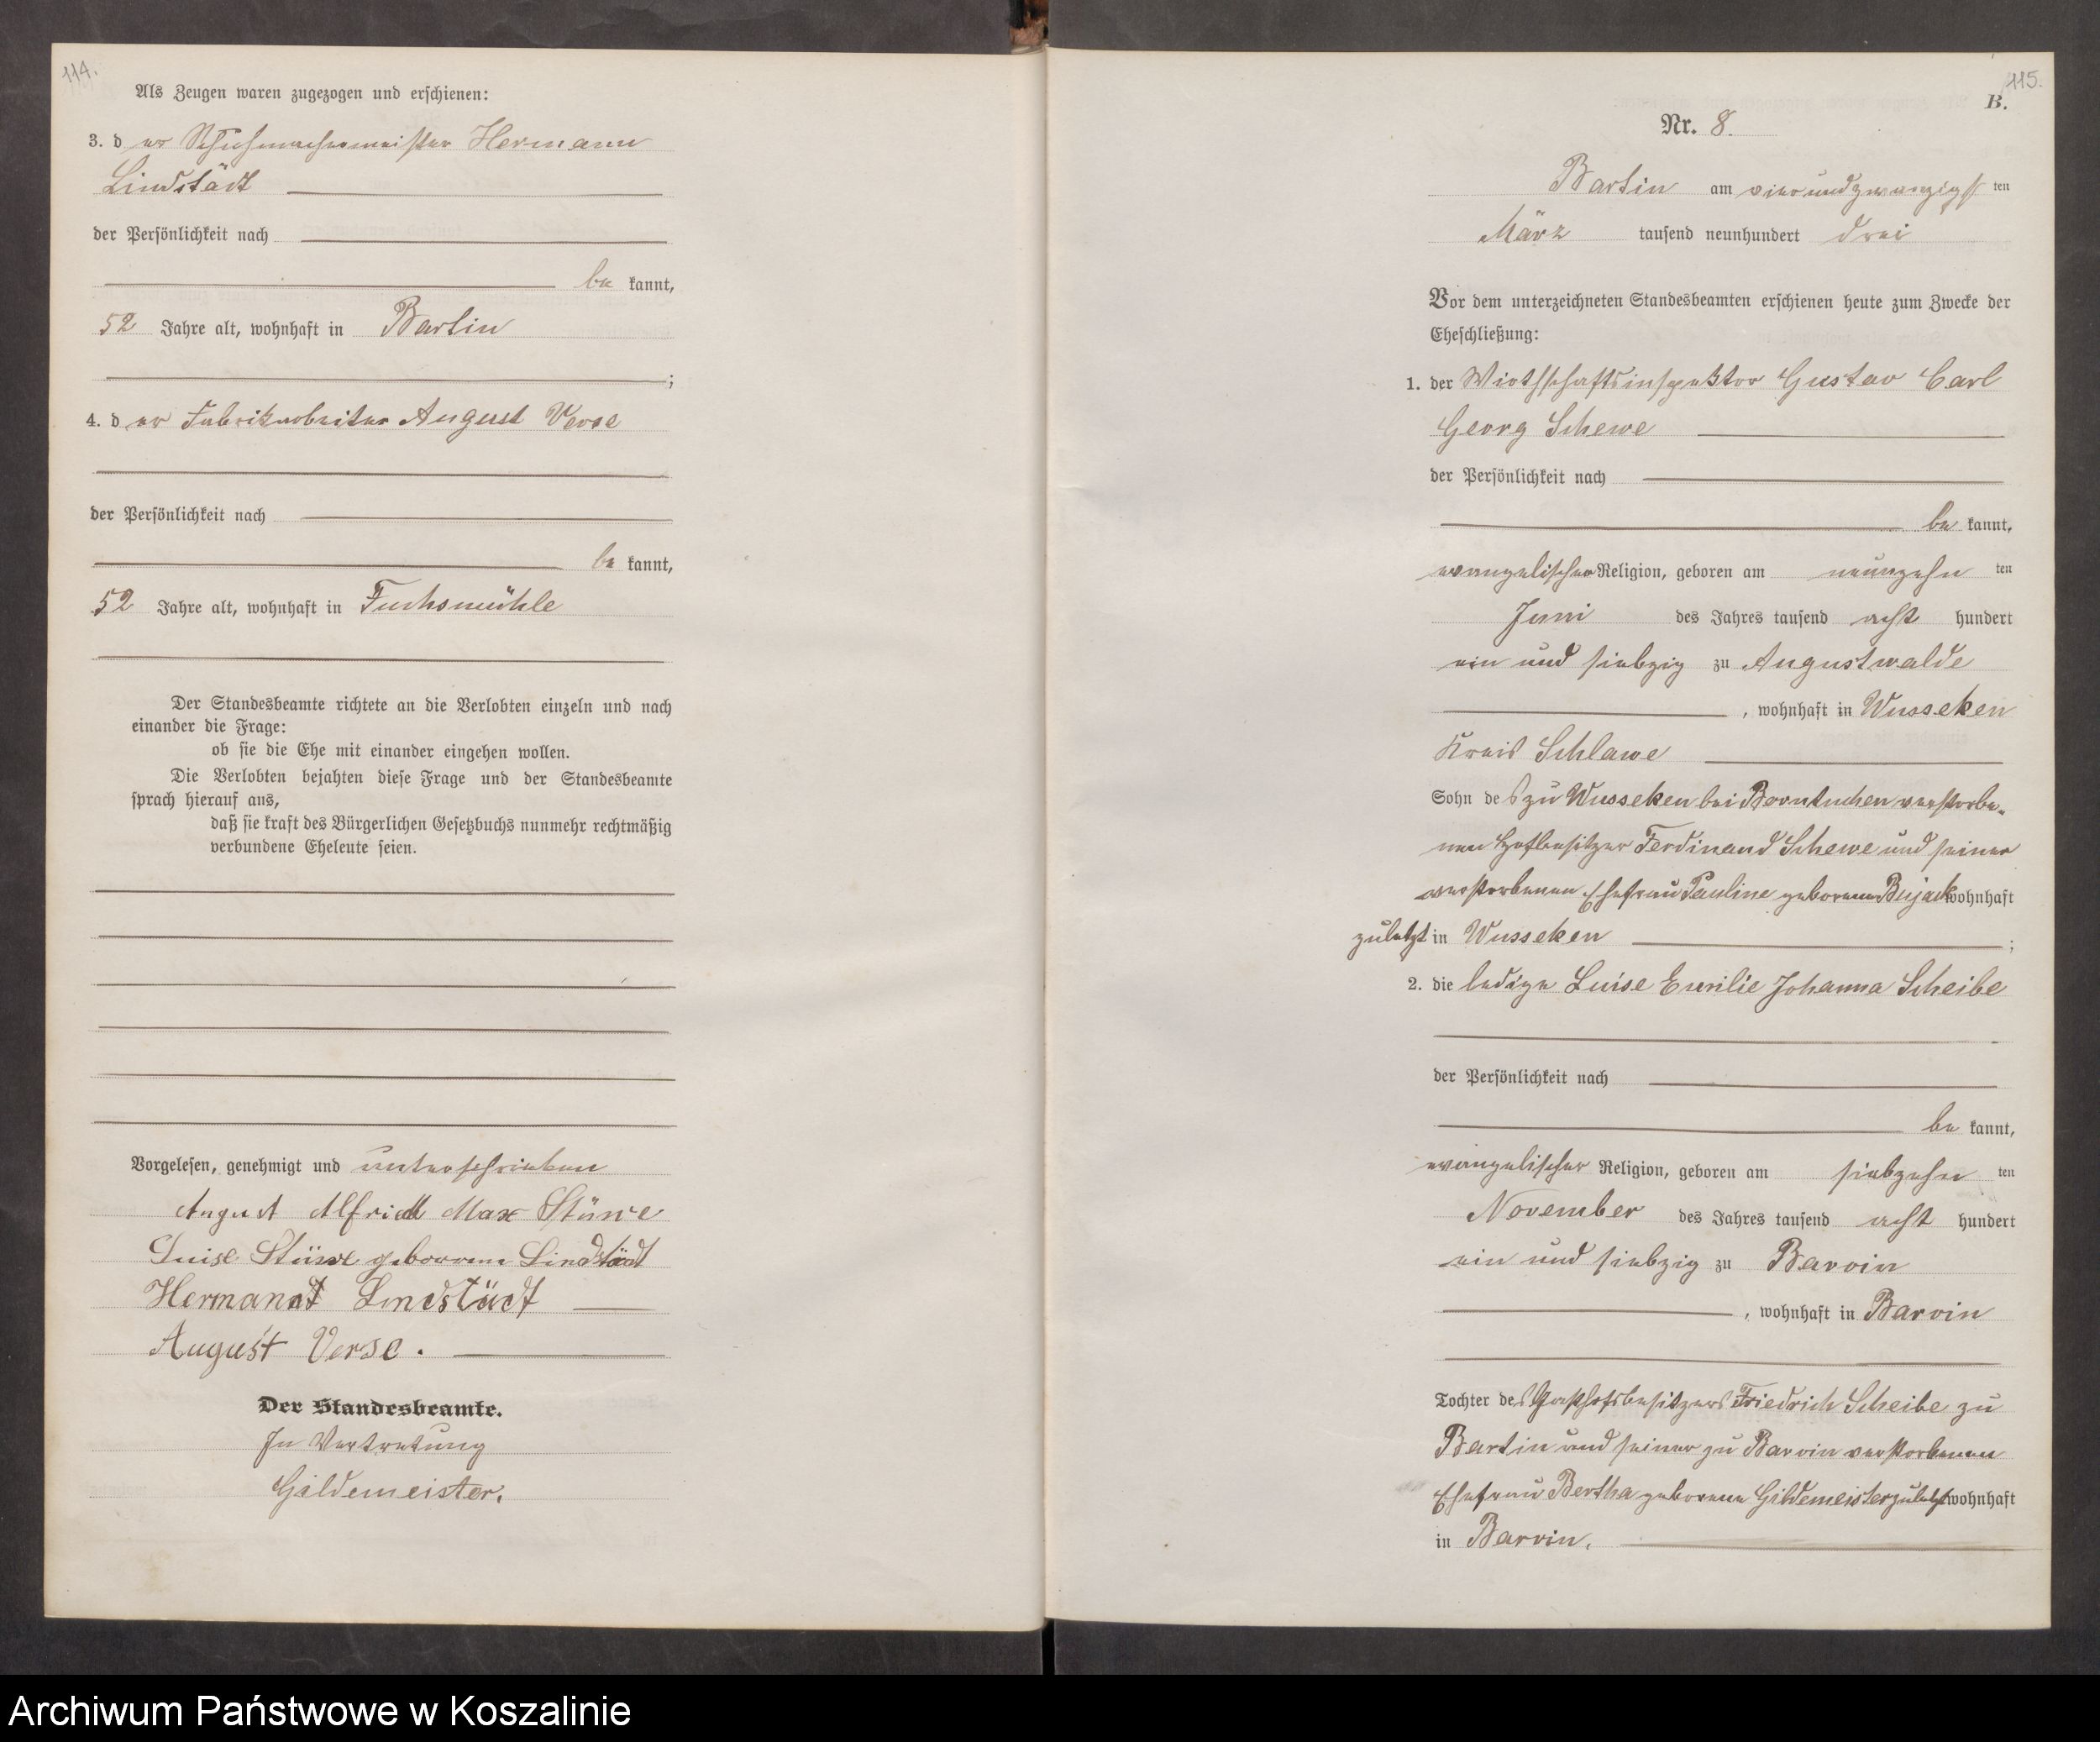 114.
Als Zeugen waren zugezogen und erschienen:
3. der Schuhmachermeister Hermann
Lindstädt
der Persönlichkeit nach
be kannt,
52 Jahre alt, wohnhaft in Bartin
;
4. der Fabrikarbeiter August Verse
der Persönlichkeit nach
be kannt,
52 Jahre alt, wohnhaft in Fuchsmühle
Der Standesbeamte richtete an die Verlobten einzeln und nach
einander die Frage:
ob sie die Ehe mit einander eingehen wollen.
Die Verlobten bejahten diese Frage und der Standesbeamte
sprach hierauf aus,
daß sie kraft des Bürgerlichen Gesetzbuchs nunmehr rechtmäßig
verbundene Eheleute seien.
Vorgelesen, genehmigt und unterschrieben
August Alfried Max Stüwe
Luise Stüwe geborene Lindstädt
Hermann Lindstädt
August Verse.
Der Standesbeamte.
In Vertretung
Gildemeister.
115.
B.
Nr. 8.
Bartin am vierundzwanzigsten
März tausend neunhundert drei
Vor dem unterzeichneten Standesbeamten erschienen heute zum Zwecke der
Eheschließung:
1. der Wirthschaftsinspektor Gustav Carl
Georg Schewe
der Persönlichkeit nach
be kannt,
evangelischer Religion, geboren am neunzehn ten
Juni des Jahres tausend acht hundert
ein und siebzig zu Augustwalde
, wohnhaft in Wusseken
Kreis Schlawe
Sohn des zu Wusseken bei Borntuchen verstorbe-
nen Hofbesitzer Ferdinand Schewe und seiner
verstorbenen Ehefrau Pauline geborene Bujack wohnhaft
zuletzt in Wusseken ;
2. die ledige Luise Emilie Johanna Scheibe
der Persönlichkeit nach
be kannt,
evangelischer Religion, geboren am siebzehn ten
November des Jahres tausend acht hundert
ein und siebzig zu Barvin
, wohnhaft in Barvin
Tochter des Gasthofsbesitzers Friedrich Scheibe zu
Bartin und seiner zu Barvin verstorbenen
Ehefrau Bertha geborene Gildemeister zuletzt wohnhaft
in Barvin.
Archiwum Państwowe w Koszalinie